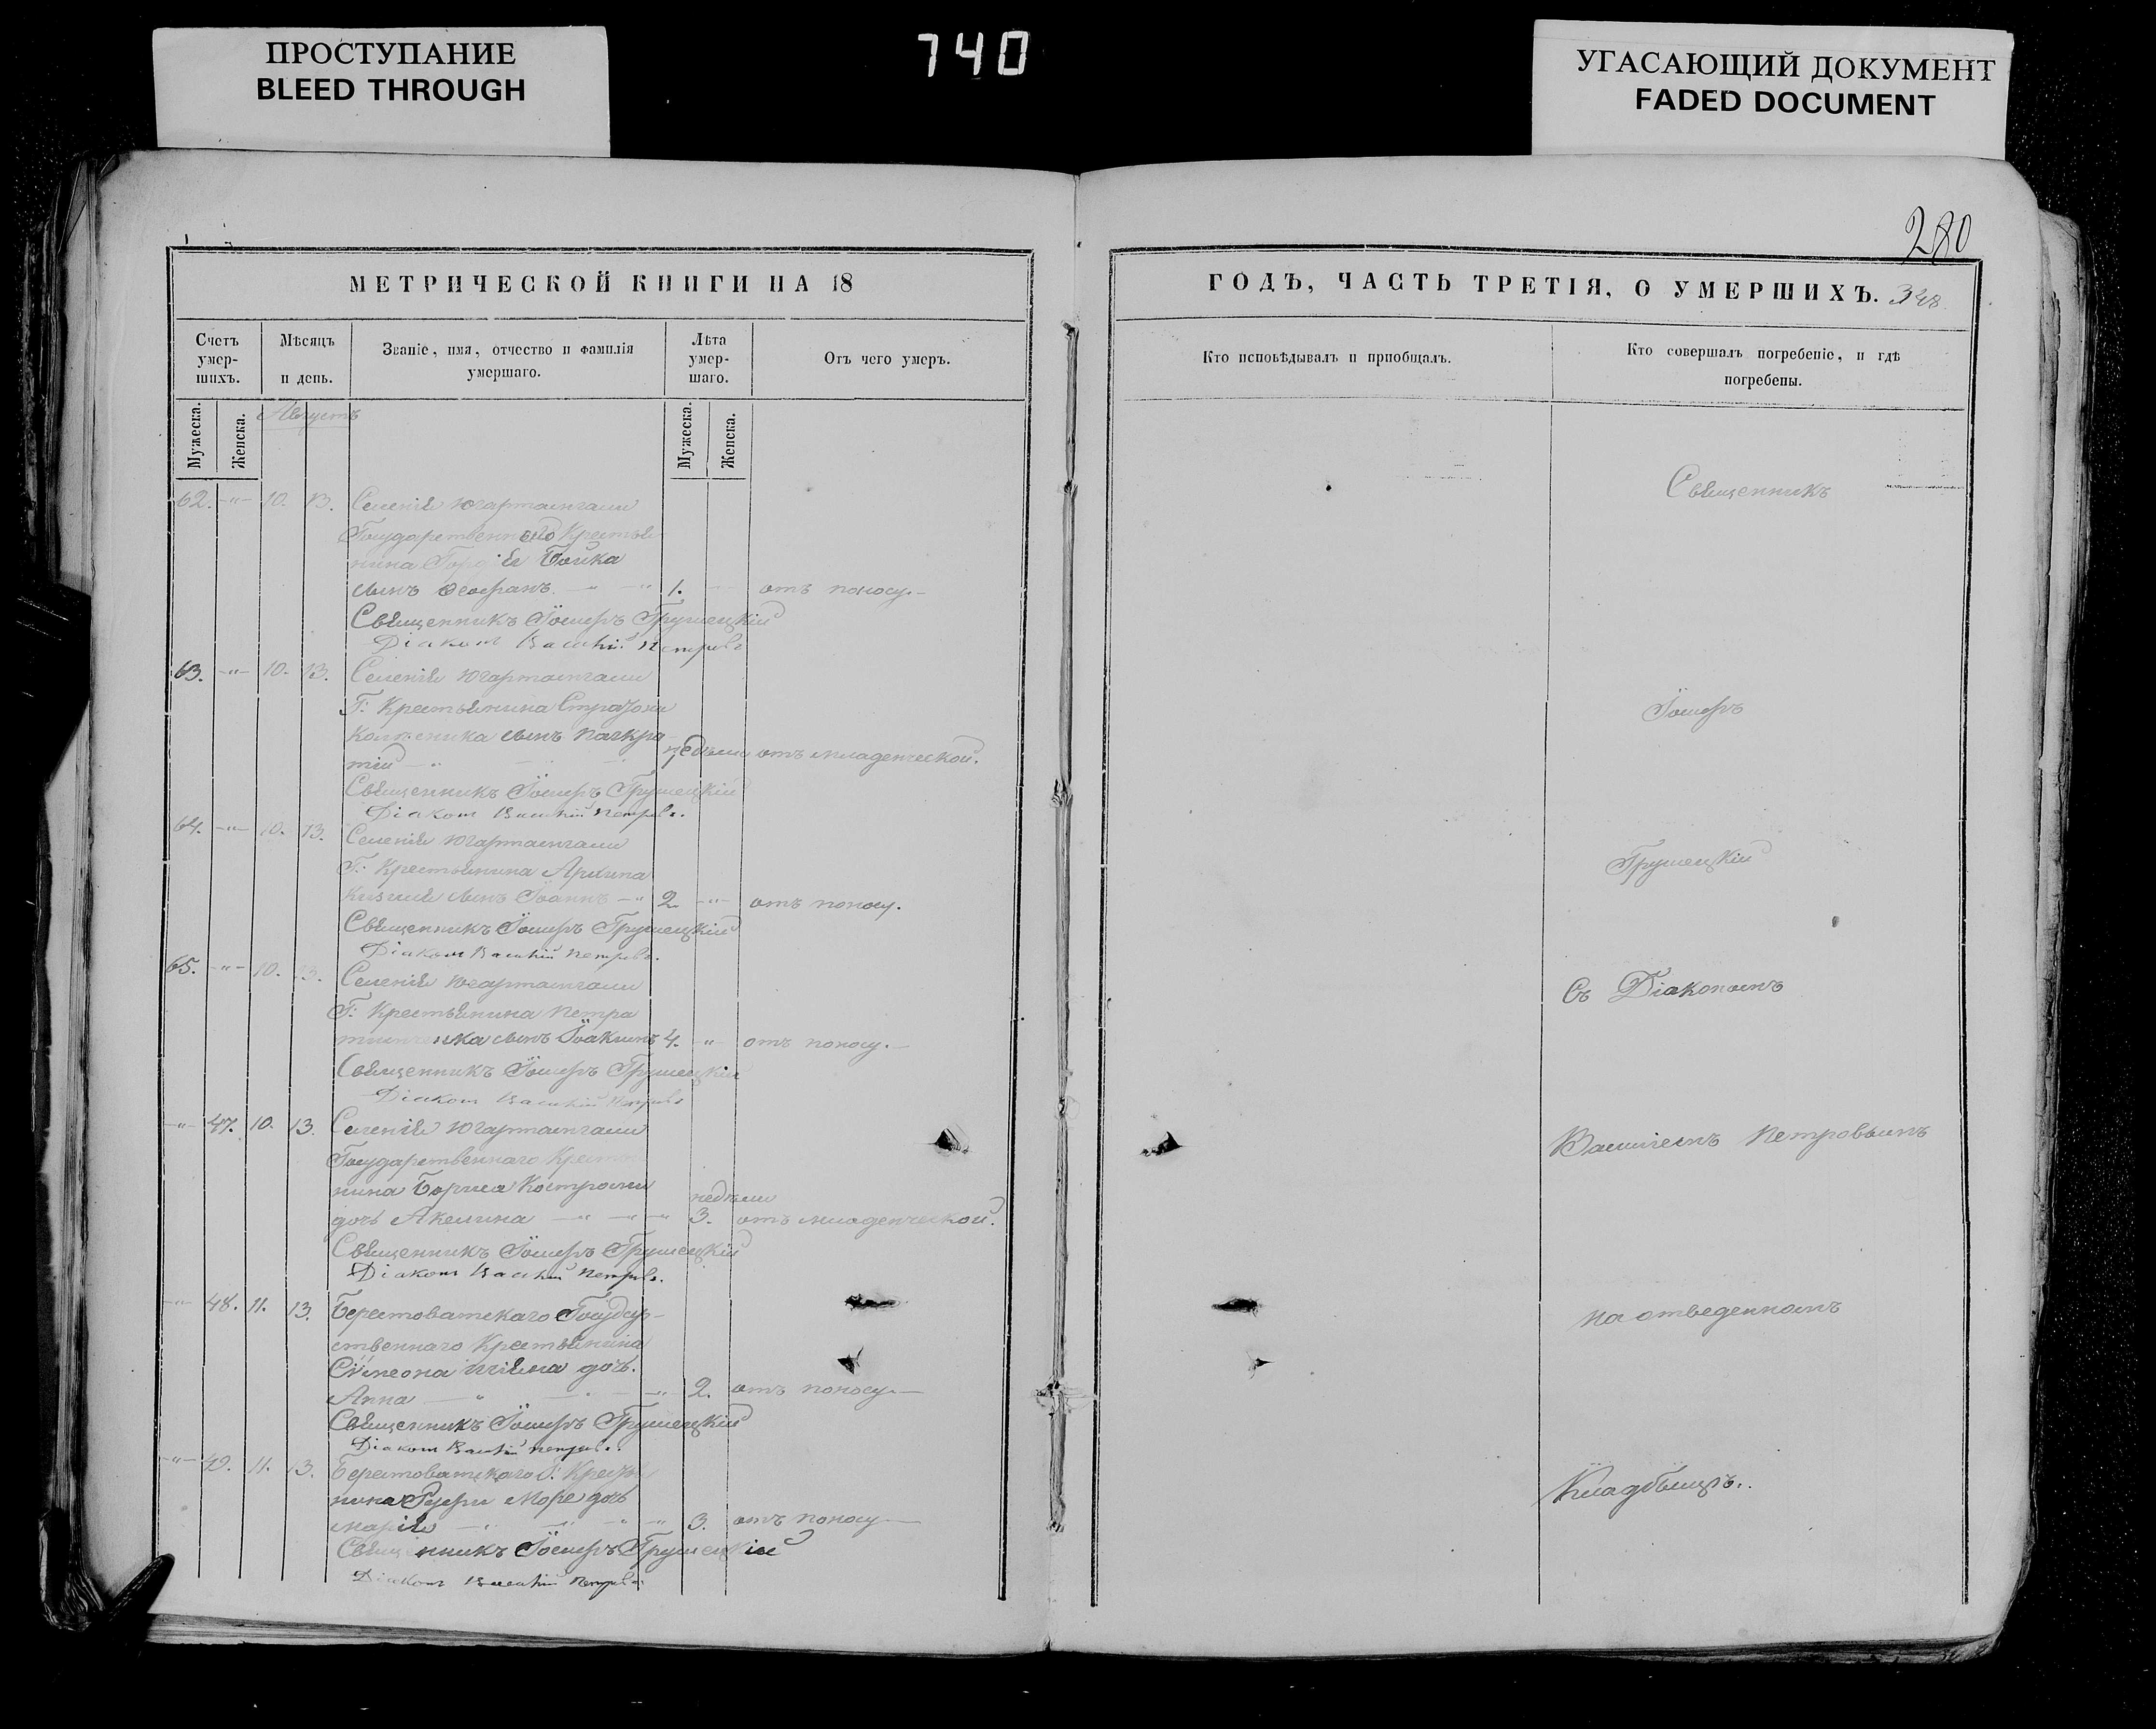 ПРОСТУПАНИЕ
BLEED THROUGH
740
УГАСАЮЩИЙ ДОКУМЕНТ
FADED DOCUMENT
280
МЕТРИЧЕСКОЙ КНИГИ НА 18
ГОДЪ, ЧАСТЬ ТРЕТІЯ, О УМЕРШИХЪ. 328
Счетъ умер-шихъ.
Мѣсяцъ и день.
Званіе, имя, отчество и фамилія умершаго.
Лѣта умер-шаго.
Отъ чего умеръ.
Кто исповѣдывалъ и пріобщалъ.
Кто совершалъ погребеніе, и гдѣ погребены.
Мужеска.
Женска.
Августъ
Мужеска.
Женска.
62. -"- 10. 13. Селенія
Государственнаго Крестья
нина Бойка
сынъ 1. отъ поносу.
Священникъ Іосифъ Грушецкій
Діаконъ Василій Петровъ
63. -"- 10. 13. Селенія
Г: Крестьянина
сынъ Панкра
тій недѣли отъ младенческой.
Священникъ Іосифъ Грушецкій
Діаконъ Василій Петровъ.
64. -"- 10. 13. Селенія
Г: Крестьянина
сынъ Іоаннъ -"- 2. -"- отъ поносу.
Священникъ Іосифъ Грушецкій
Діаконъ Василій Петровъ.
65. -"- 10. 13. Селенія
Г: Крестьянина Петра
сынъ Іоакимъ 4. -"- отъ поносу.
Священникъ Іосифъ Грушецкій
Діаконъ Василій Петровъ
-"- 47. 10. 13. Селенія
Государственнаго Крестья
нина Бориса
недѣли
дочь Акелина 3. отъ младенческой.
Священникъ Іосифъ Грушецкій
Діаконъ Василій Петровъ.
-"- 48. 11. 13. Берестоватскаго Государ-
ственнаго Крестьянина
Сѵмеона дочь.
Анна -"- 2. отъ поносу.
Священникъ Іосифъ Грушецкій
Діаконъ Василій Петровъ.
-"- 49. 11. 13. Берестоватскаго Г: Крестья
нина дочь
Марія -"- 3. отъ поносу
Священникъ Іосифъ Грушецкій
Діаконъ Василій Петровъ
Священникъ
Іосифъ
Грушецкій
Съ Діакономъ
Василіемъ Петровымъ
на отведенномъ
Кладбищѣ.